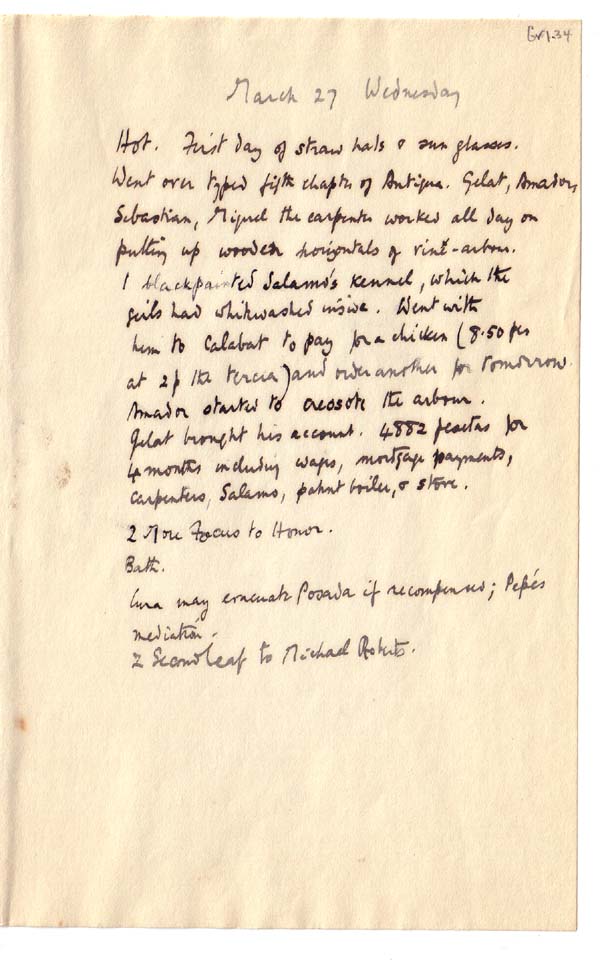 Gr1.34
March 27 Wednesday
Hot. First day of straw hats & sun glasses.
Went over typed fifth chapter of Antigua. Gelat, Amador,
Sebastian, Miguel the carpenter worked all day on
putting up wooden horizontals of vine-arbour.
I blackpainted Salamo's kennel, which the
girls had whitewashed inside. Went with
him to Calabat to pay for a chicken (8.50 pes
at 2p the tercia) and order another for tomorrow.
Amador started to creosote the arbour.
Gelat brought his account. 4882 pesetas for
4 months including wages, mortgage payments,
carpenters, Salamo, patent boiler, & stove.
2 More Focus to Honor.
Bath.
Cura may evacuate Posada if recompensed; Pepe's
mediation.
2 Second Leaf to Michael Roberts.